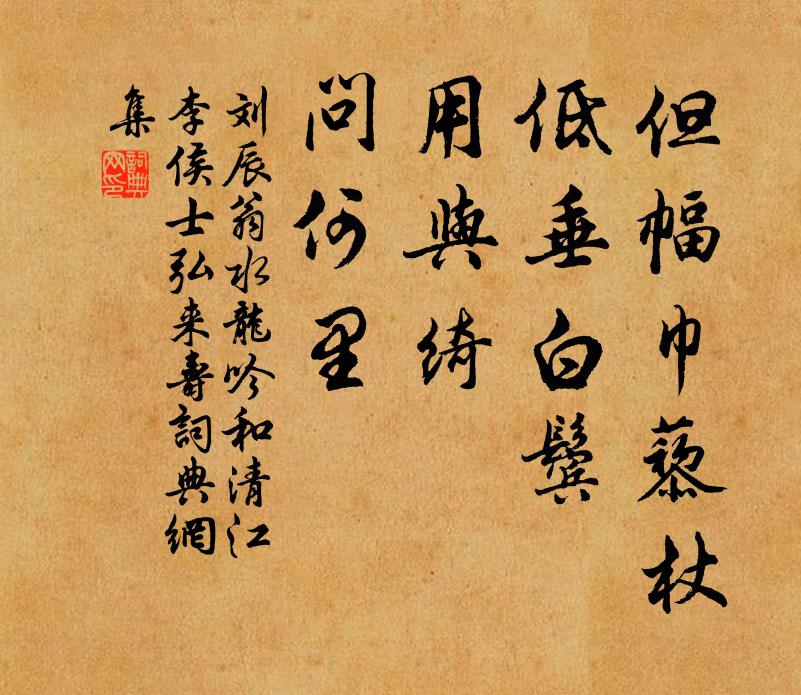 但幅巾藜杖
低垂白鬓
用與绮
问何里
刘辰翁水龍吟和清江
李侯士弘来壽詞典網
集
詞典
网印